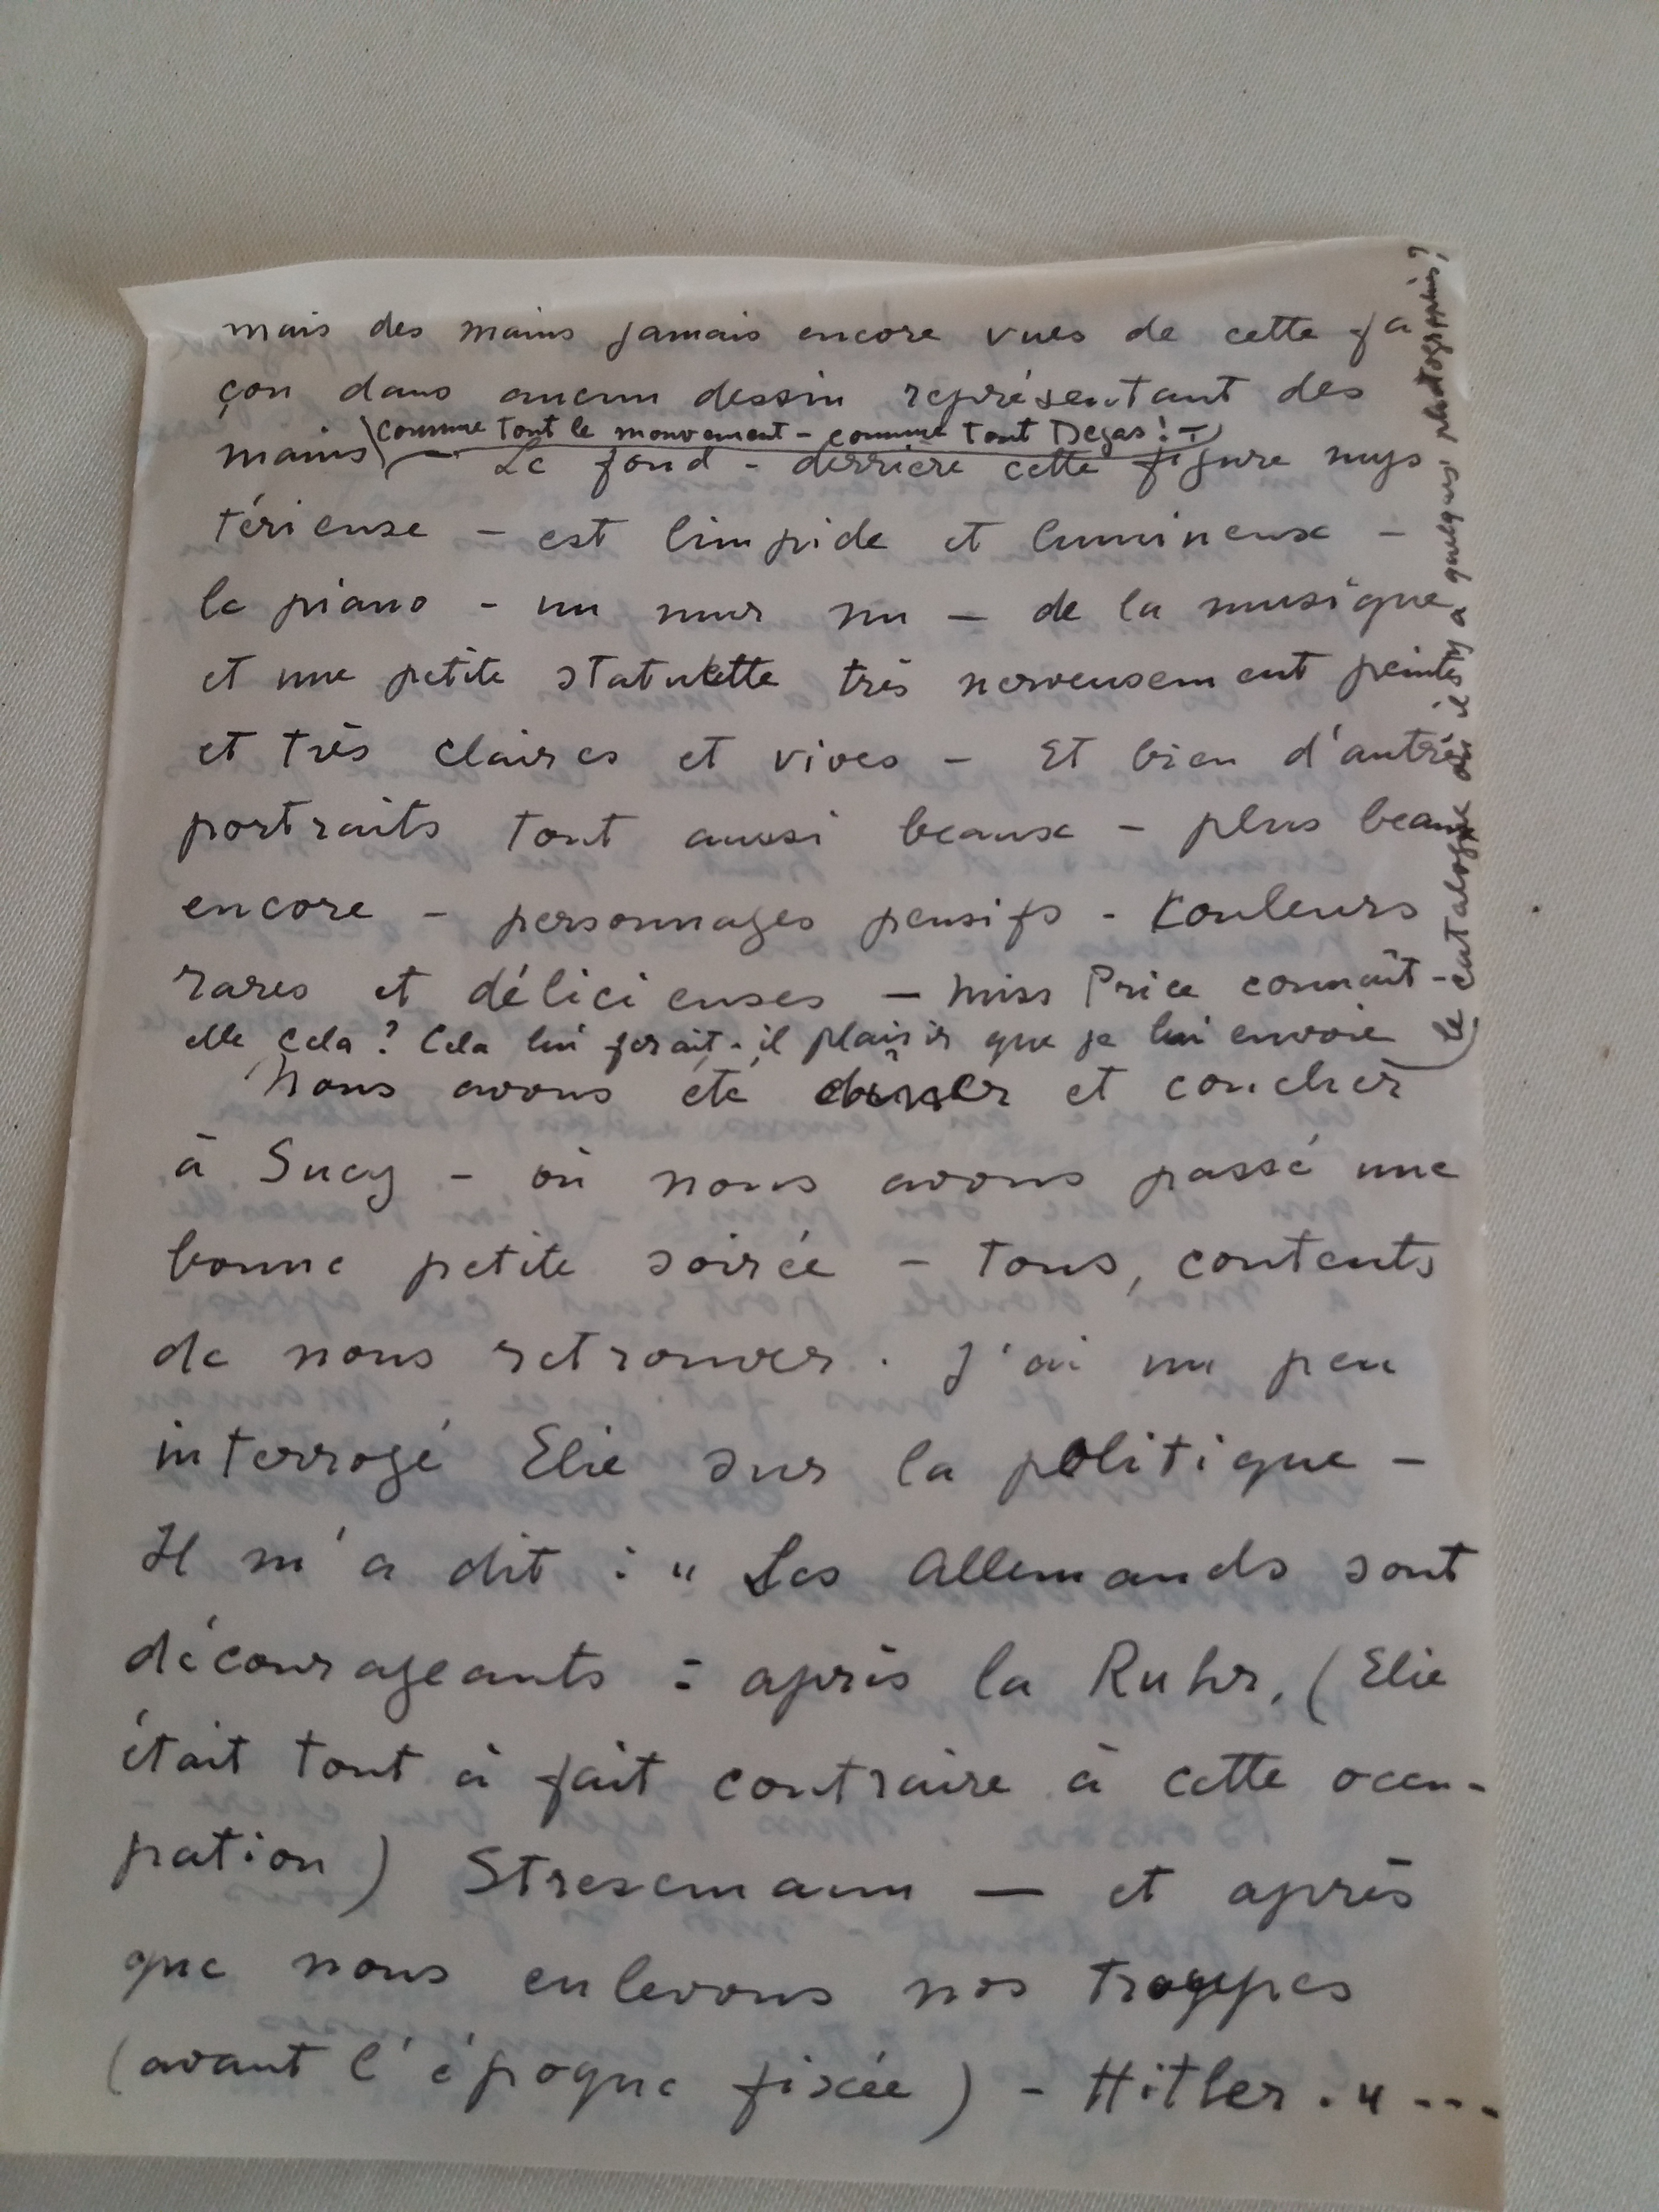 mais des mains jamais encore vues de cette fa
çon dans aucun dessin représentant des
mains (comme tout le mouvement - comme tout Degas! -)
- Le fond - derrière cette figure mys
térieuse - est limpide et lumineux -
le piano - un mur nu - de la musique
et une petite statuette très nerveusement peintes
et très claires et vives - Et bien d'autres
portraits tout aussi beaux - plus beaux
encore - personnages pensifs - Couleurs
rares et délicieuses - Miss Price connaît-
elle cela? Cela lui ferait-il plaisir que je lui envoie
le catalogue où il y a quelques photographies?)
Nous avons été dîner et coucher
à Sucy - où nous avons passé une
bonne petite soirée - tous, contents
de nous retrouver. J'ai un peu
interrogé Elie sur la politique -
Il m'a dit : " Les Allemands sont
décourageants : après la Ruhr, (Elie
était tout à fait contraire à cette occu-
pation) Stresemann — et après
que nous enlevons nos troupes
(avant l'époque fixée) - Hitler. " ---